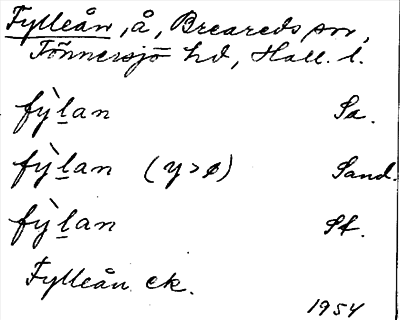 Fylleån, å, Breareds sn,
Tönnersjö hd, Hall. l.
fỳḻan Sa.
fỳḻan (y>ø) Sand.
fỳḻan Sf.
Fylleån ek.
1954